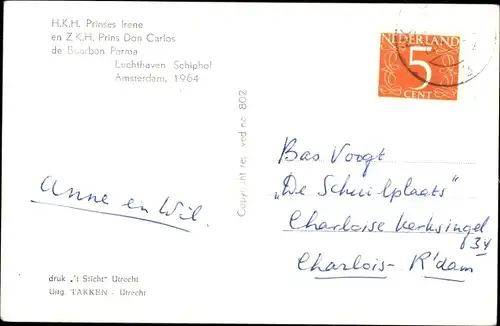 H.K.H. Prinses Irene
en Z.K.H. Prins Don Carlos
de Bourbon Parma
Luchthaven Schiphol
Amsterdam, 1964
NEDERLAND
5
CENT
Copyright res ved no. 802
Bas Voogt
„De Schuilplaats"
Charloise Kerksingel
34
Charlois - R'dam
Anne en Wil.
druk „'t Sticht" Utrecht
Uitg. TAKKEN - Utrecht